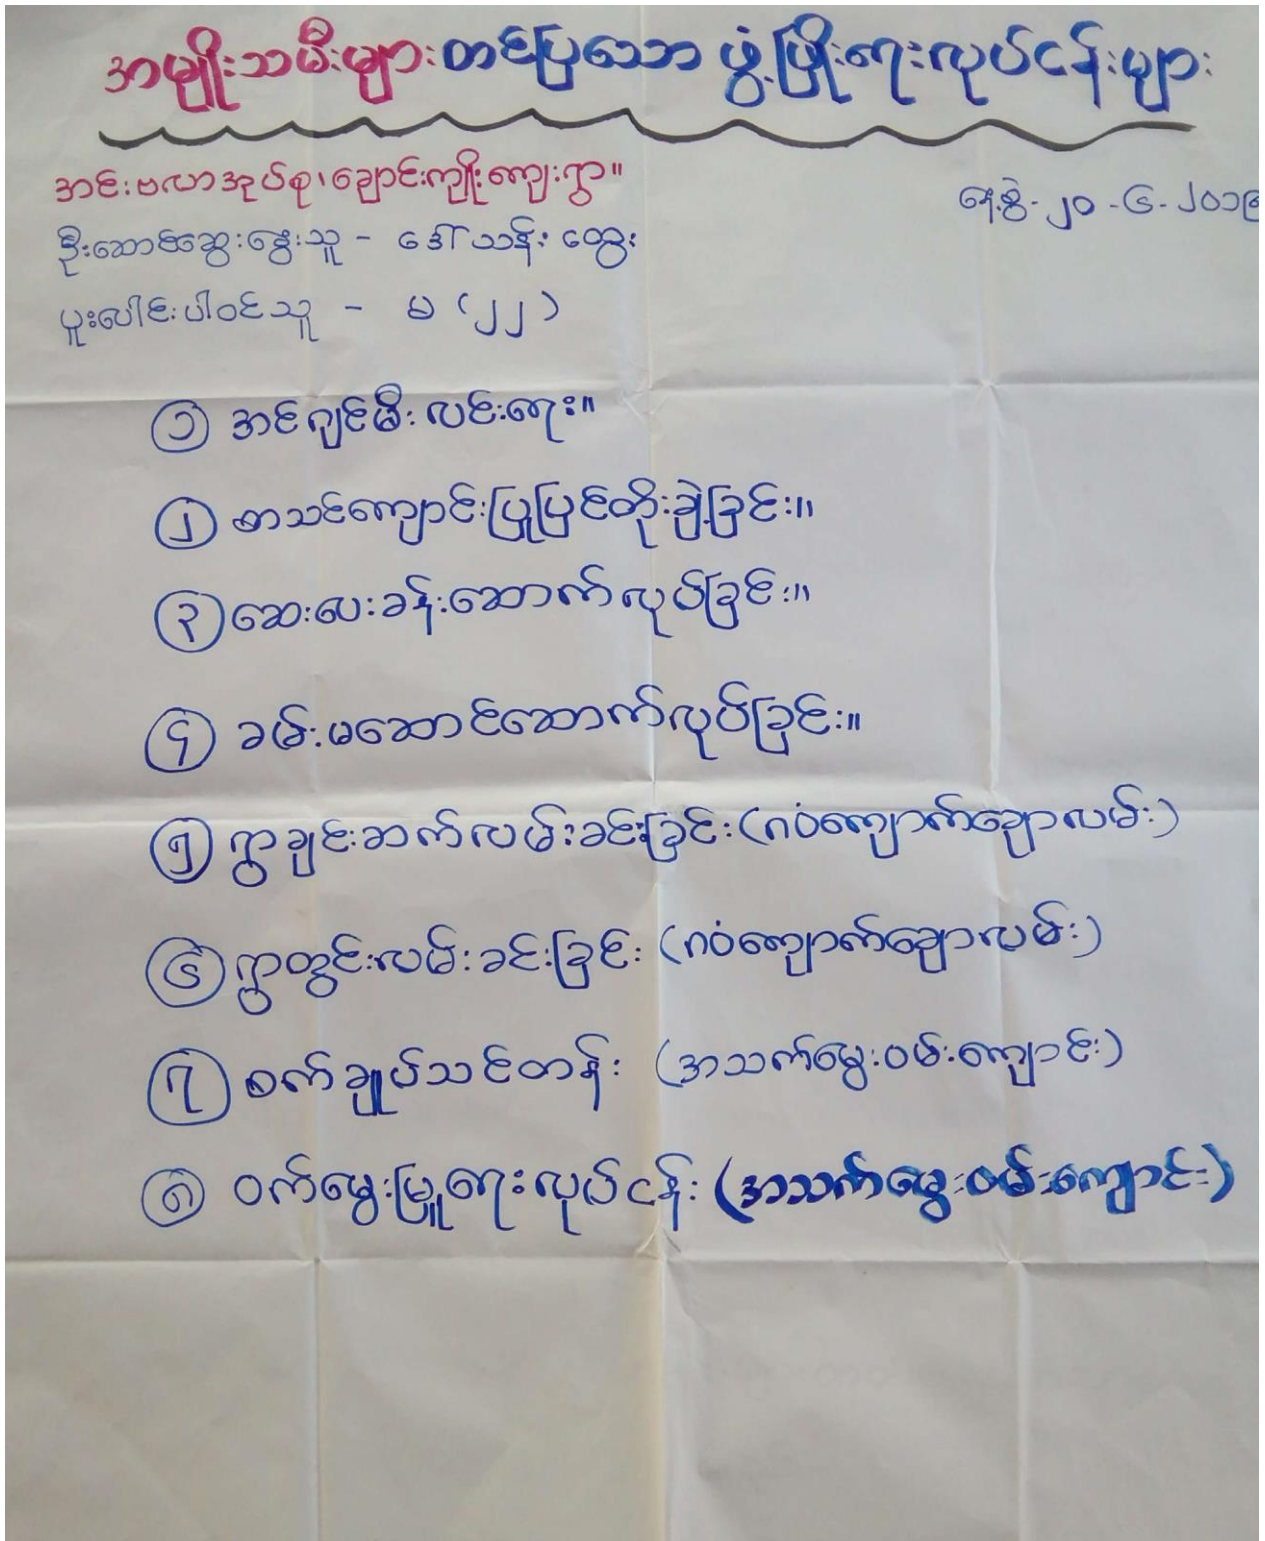 အမျိုးသမီးများတင်ပြသော ဖွံ့ဖြိုးရေးလုပ်ငန်းများ
အင်းဗလာအုပ်စု၊ ချောင်းကျိုးကျေးရွာ။
နေ့စွဲ - ၂၀ - ၆ - ၂၀၁၉
ဦးဆောင်ဆွေးနွေးသူ - ဒေါ်သန်းထွေး
ပူးပေါင်းပါဝင်သူ - မ (၂၂)
၁ အင်ဂျင်မီးလင်းရေး။
၂ စာသင်ကျောင်းပြုပြင်တိုးချဲ့ခြင်း။
၃ ဆေးပေးခန်းဆောက်လုပ်ခြင်း။
၄ ခမ်းမဆောင်ဆောက်လုပ်ခြင်း။
၅ ရွာချင်းဆက်လမ်းခင်းခြင်း (ဂဝံကျောက်ချောလမ်း)
၆ ရွာတွင်းလမ်းခင်းခြင်း (ဂဝံကျောက်ချောလမ်း)
၇ စက်ချုပ်သင်တန်း (အသက်မွေးဝမ်းကျောင်း)
၈ ဝက်မွေးမြူရေးလုပ်ငန်း (အသက်မွေးဝမ်းကျောင်း)